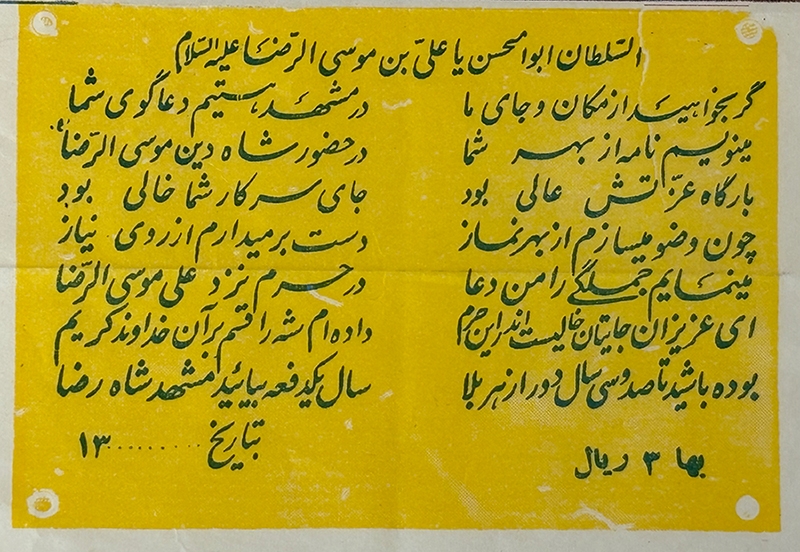 السّلطان ابوالحسن یا علیّ بن موسی الرّضا علیه السّلام
گر بخواهید از مکان و جای ما در مشهد هستیم دعاگوی شما
مینویسم نامه از بهر شما در حضور شاه دین موسی الرّضا
بارگاه عزّتش عالی بود جای سرکار شما خالی بود
چون وضو میسازم از بهر نماز دست برمیدارم از روی نیاز
مینمایم جملگی را من دعا در حرم نزد علی موسی الرّضا
ای عزیزان جایتان خالیست اندر این حرم داده ام شه را قسم بر آن خداوند کریم
بوده باشید تا صد و سی سال دور از هر بلا سال یکدفعه بیائید مشهد شاه رضا
بتاریخ ......... ۱۳
بها ۳ ریال